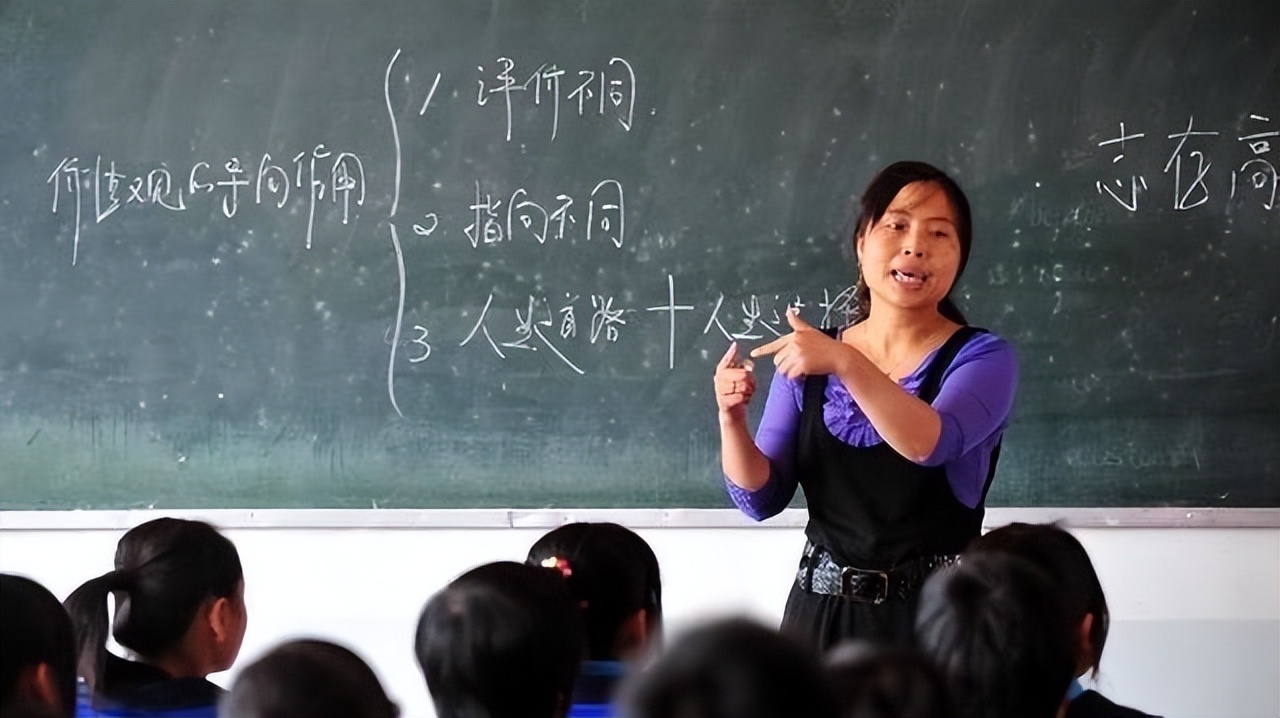 价值观的导向作用
1 评价不同.
2 指向不同
3 人生道路 + 人生选择
志在高